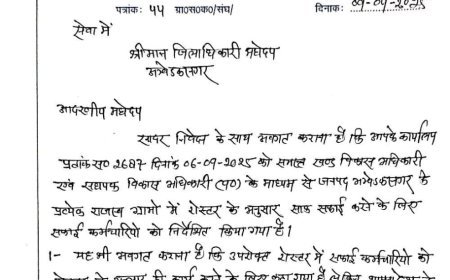 पत्रांक: 44 ग्रा०स०क०/संघ/ दिनांक: 09-09-2025
सेवा में
श्रीमान जिलाधिकारी महोदय
अम्बेडकरनगर
आदरणीय महोदय
सादर निवेदन के साथ अवगत कराना है कि आपके कार्यालय
पत्रांक स० 2687 दिनांक 06-09-2025 को समस्त खण्ड विकास अधिकारी
एवं सहायक विकास अधिकारी (पं०) के माध्यम से जनपद अम्बेडकरनगर के
प्रत्येक राजस्व ग्रामो में रोस्टर के अनुसार साफ सफाई करने के लिए
सफाई कर्मचारियो को निर्देशित किया गया है।
1- यह भी अवगत कराना है कि उपरोक्त रोस्टर में सफाई कर्मचारियो को
के अनुसार ही कार्य करने के लिए कहा गया है लेकिन